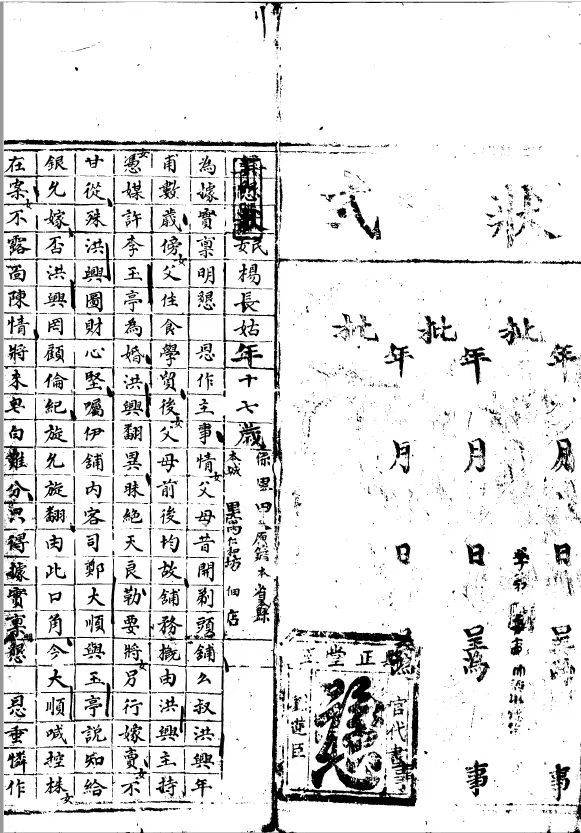 狀式
年 月 日 呈為 事
批 年 月 日 呈為 事
批 年 月 日
批
正堂
官代書
童進臣
民楊長姑年十七歲
本城 仁和坊 佃店
為據實稟明懇 恩作主事情女父母昔開剃頭舖么叔洪興年
甫數歲傍女父住食學貿後女父母前後均故舖務概由洪興主持
女憑媒許李玉亭為婚洪興翻異昧絕天良勒要將女另行嫁賣女不
甘從殊洪興圖財心堅囑伊舖內客司鄭大順與玉亭說知給
銀允嫁否洪興罔顧倫紀旋允旋翻由此口角今大順喊控林女
在案女不露面陳情將來皂白難分只得據實稟懇 恩垂憐作